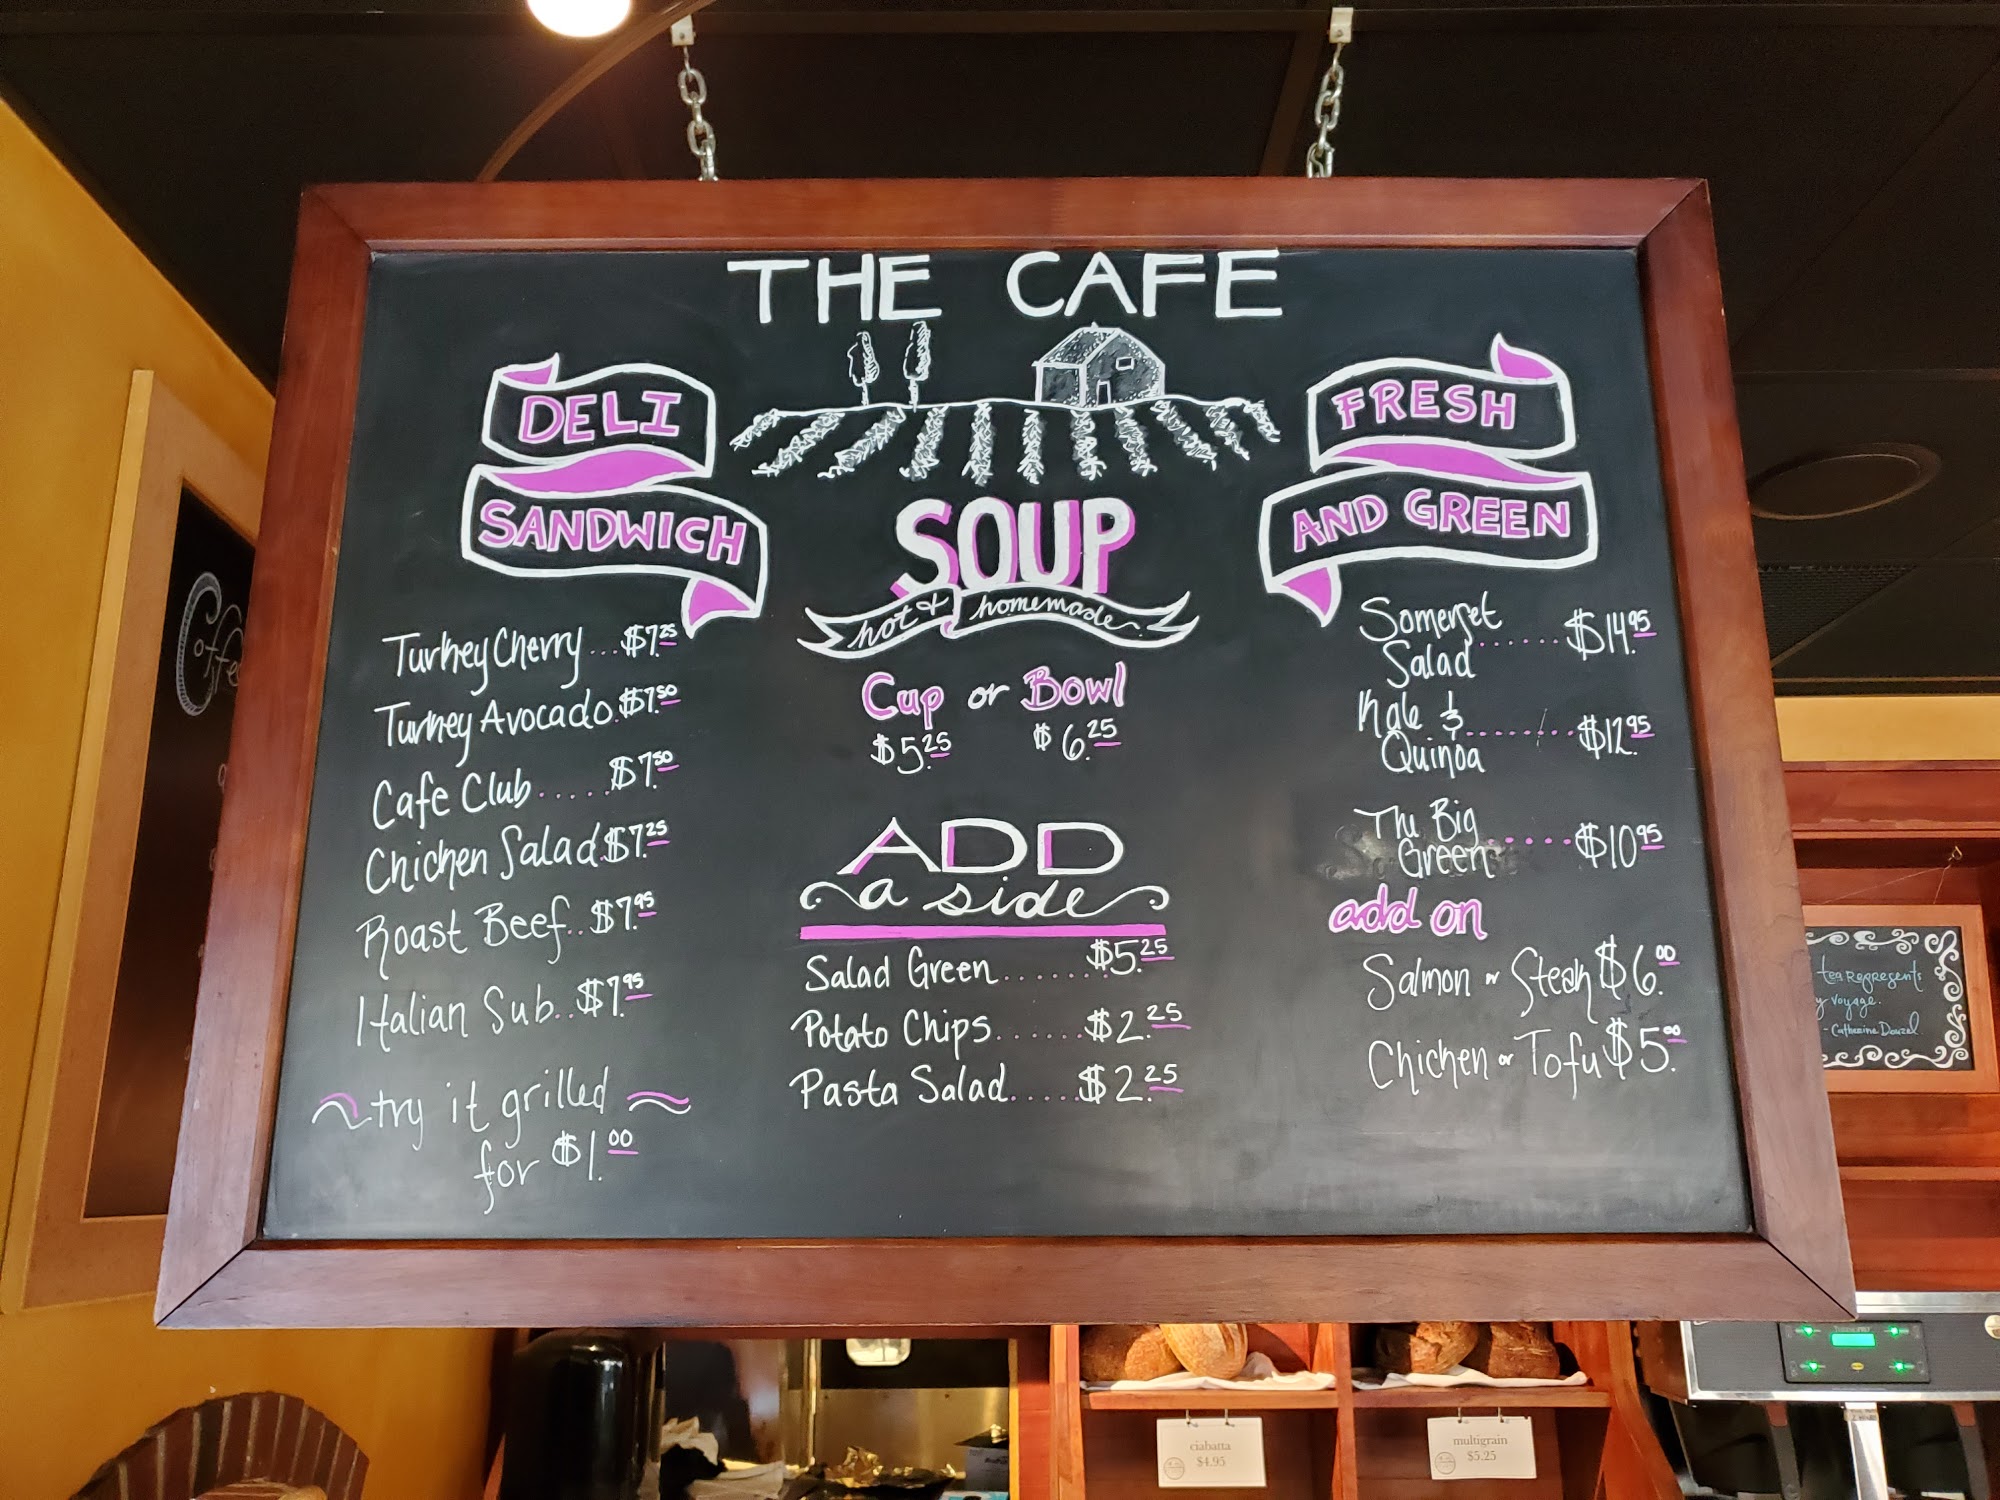 THE CAFE
DELI
SANDWICH
Turkey Cherry...$7.25
Turkey Avocado.$7.50
Cafe Club.....$7.50
Chicken Salad.$7.25
Roast Beef..$7.95
Italian Sub..$7.95
try it grilled
for $1.00
SOUP
hot & homemade
Cup or Bowl
$5.25 $6.25
ADD
a side
Salad Green.......$5.25
Potato Chips......$2.25
Pasta Salad.....$2.25
FRESH
AND GREEN
Somerset
Salad......$14.95
Kale &
Quinoa........$12.95
The Big
Green.....$10.95
add on
Salmon or Steak $6.00
Chicken or Tofu $5.00
Coffee
tea represents
y voyage.
- Catherine Douzel
ciabatta
$4.95
multigrain
$5.25